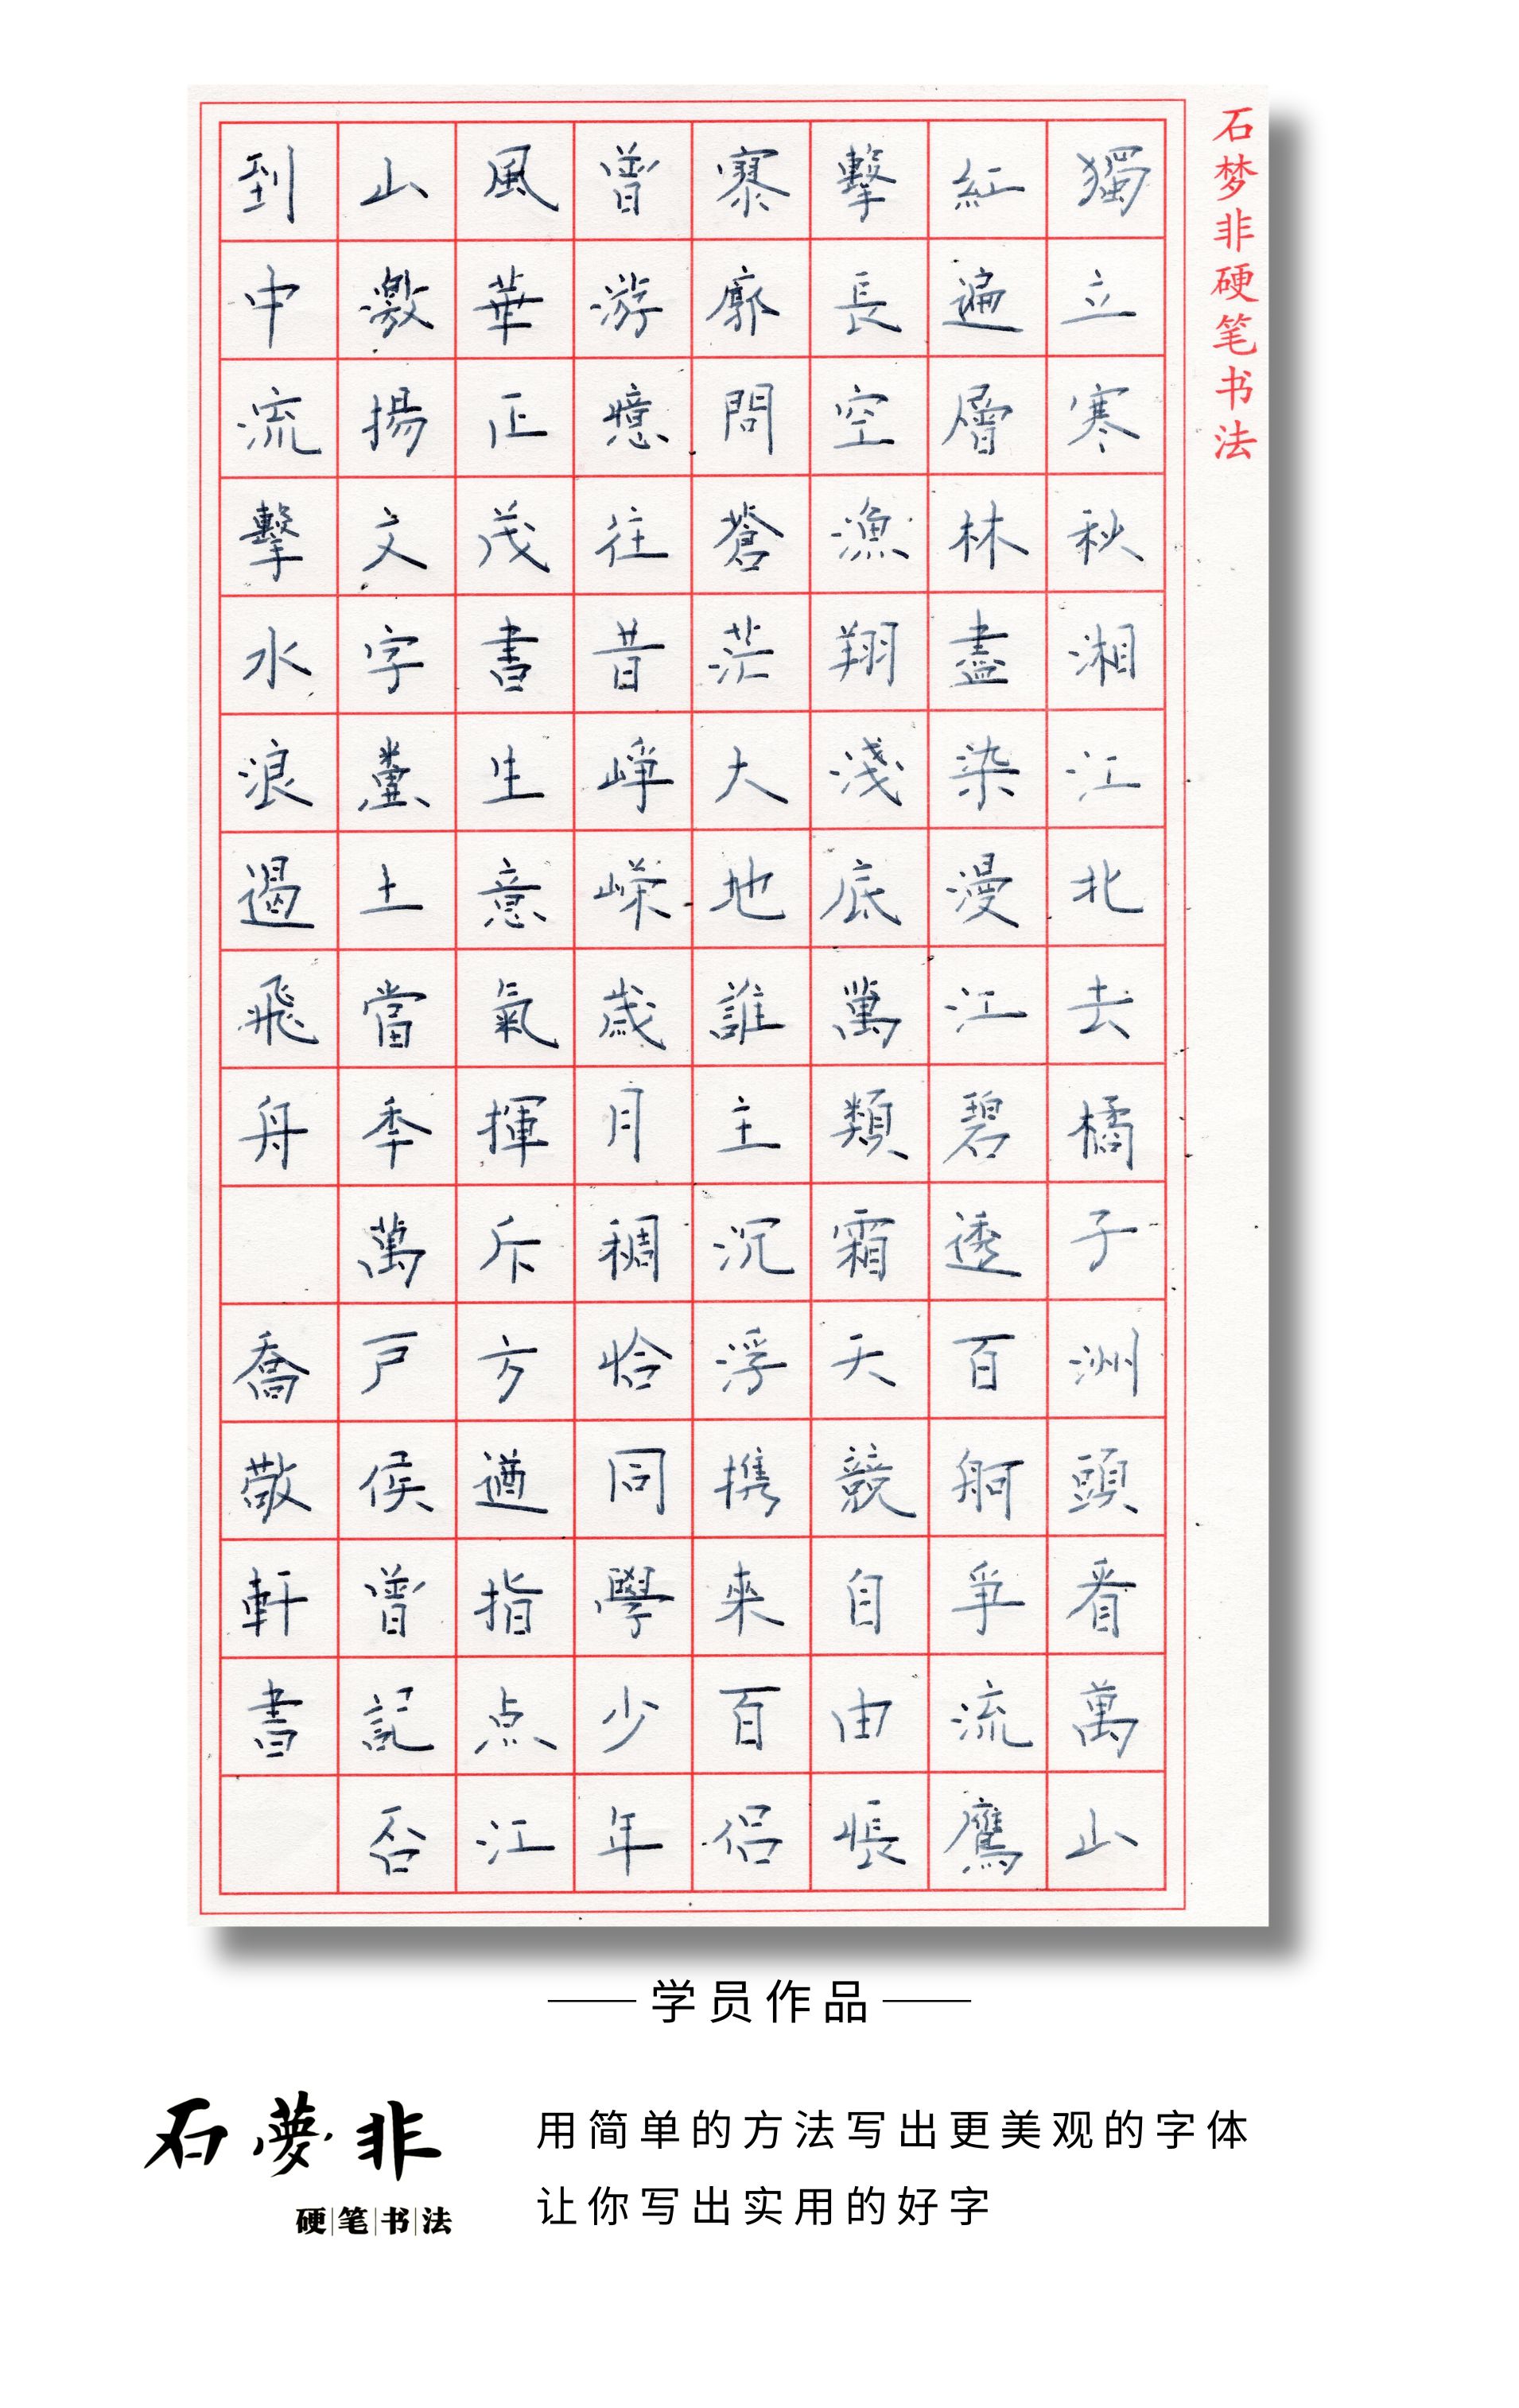 石梦非硬笔书法
獨立寒秋湘江北去橘子洲頭看萬山
紅遍層林盡染漫江碧透百舸爭流鷹
擊長空漁翔淺底萬類霜天競自由悵
寥廓問蒼茫大地誰主沉浮携來百侣
曾游憶往昔崢嶸歲月稠恰同學少年
風華正茂書生意氣揮斥方遒指点江
山激揚文字糞土當秊萬戸侯曾記否
到中流擊水浪遏飛舟 喬敬軒書
学员作品
石夢非
硬笔书法
用简单的方法写出更美观的字体
让你写出实用的好字